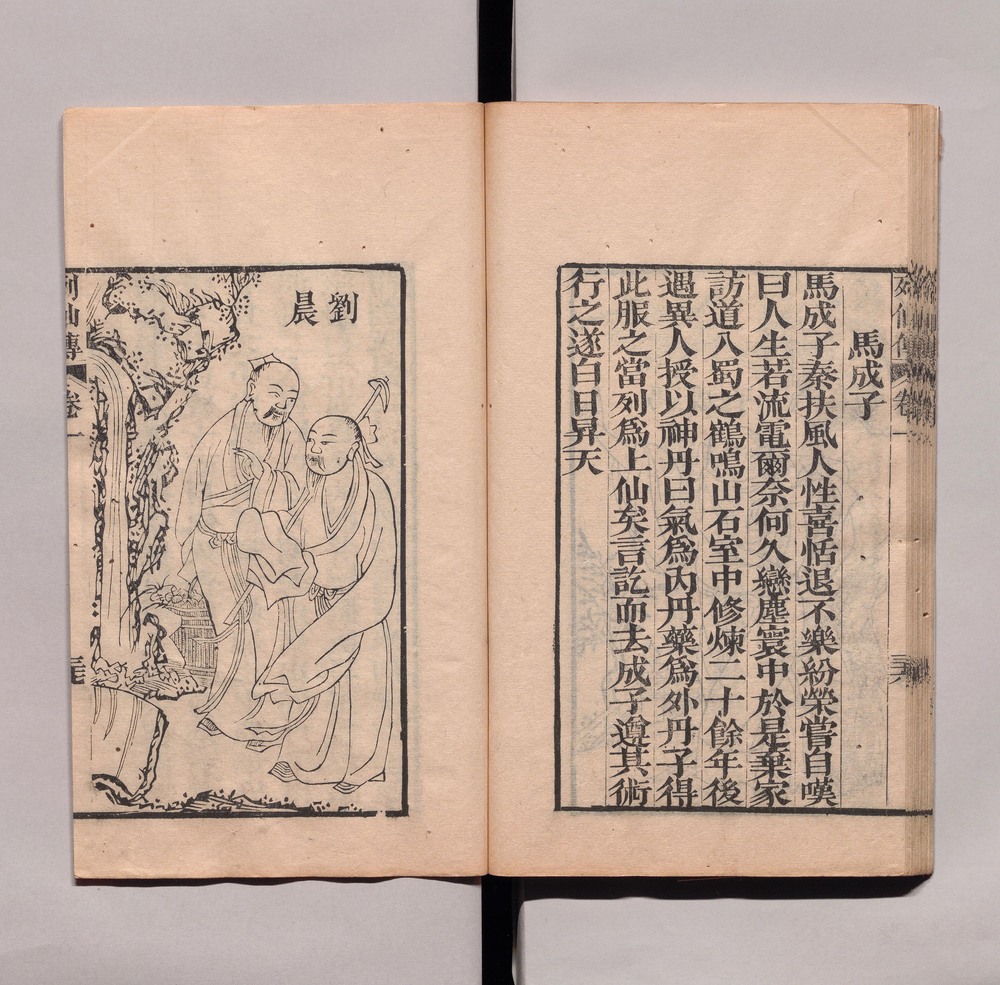 馬成子
馬成子秦扶風人性喜恬退不樂紛榮嘗自嘆
曰人生若流電爾奈何久戀塵寰中於是棄家
訪道入蜀之鶴鳴山石室中修煉二十餘年後
遇異人授以神丹曰氣爲內丹藥爲外丹子得
此服之當列爲上仙矣言訖而去成子遵其術
行之遂白日昇天
劉
晨
列仙傳
卷一